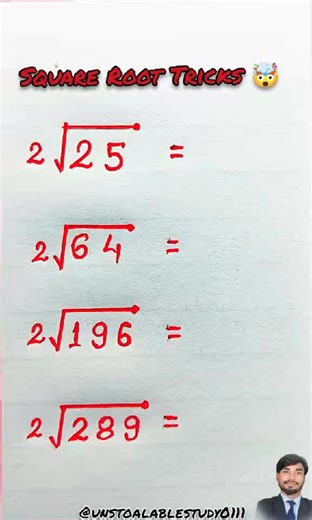 SQUARE ROOT TRICKS 🤯
2√25 =
2√64 =
2√196 =
2√289 =
@UNSTOALABLESTUDY0111